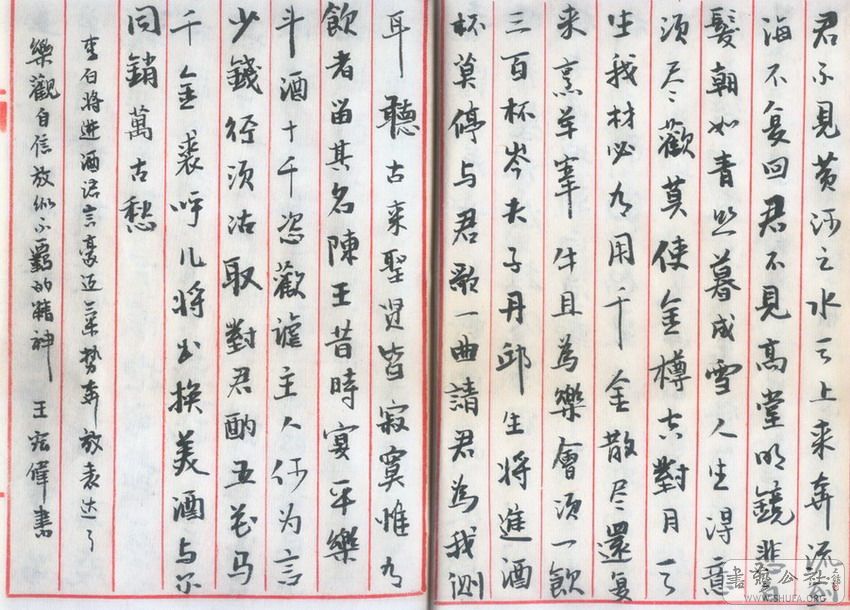 君不見黄河之水天上来奔流到
海不復回君不見高堂明鏡悲白
髮朝如青丝暮成雪人生得意
须尽歡莫使金樽空對月天
生我材必有用千金散尽還復
来烹羊宰牛且為樂會须一飲
三百杯岑夫子丹邱生将進酒
杯莫停与君歌一曲請君為我側
耳聽古来聖贤皆寂寞惟有
飲者留其名陳王昔時宴平樂
斗酒十千恣歡謔主人何为言
少錢径须沽取對君酌五花马
千金裘呼儿将出换美酒与尔
同銷萬古愁
李白将進酒语言豪迈气势奔放表达了
樂觀自信放纵不羁的精神 王宏偉書
書藝公社
WWW.SHUFA.ORG